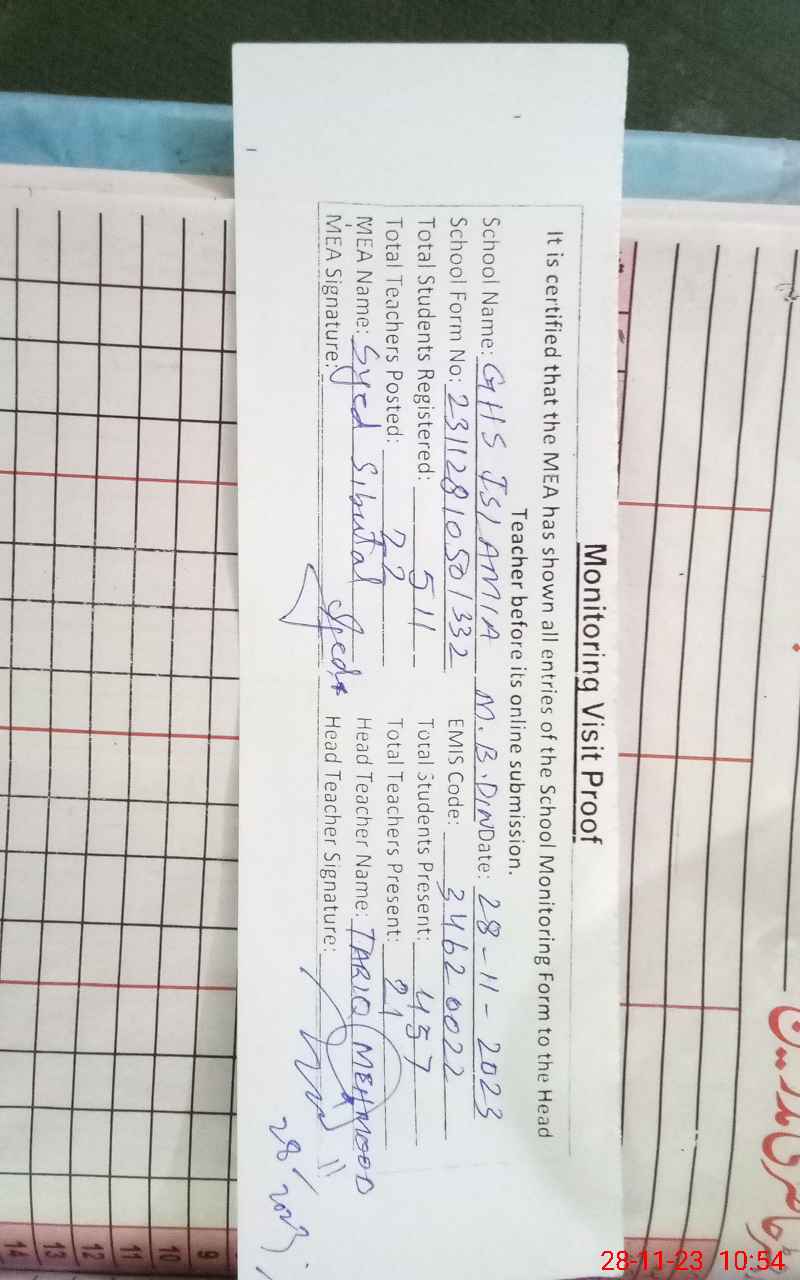 Monitoring Visit Proof
It is certified that the MEA has shown all entries of the School Monitoring Form to the Head
Teacher before its online submission.
School Name: GHS ISLAMIA M.B.DIN Date: 28-11-2023
School Form No: 23112810501332 EMIS Code: 34620022
Total Students Registered: 511 Total Students Present: 457
Total Teachers Posted: 22 Total Teachers Present: 21
MEA Name: Syed Sibutal Head Teacher Name: TARIQ MEHMOOD
MEA Signature: Head Teacher Signature:
28/11
2023
9
10
11
12
13
14
28-11-23 10:54